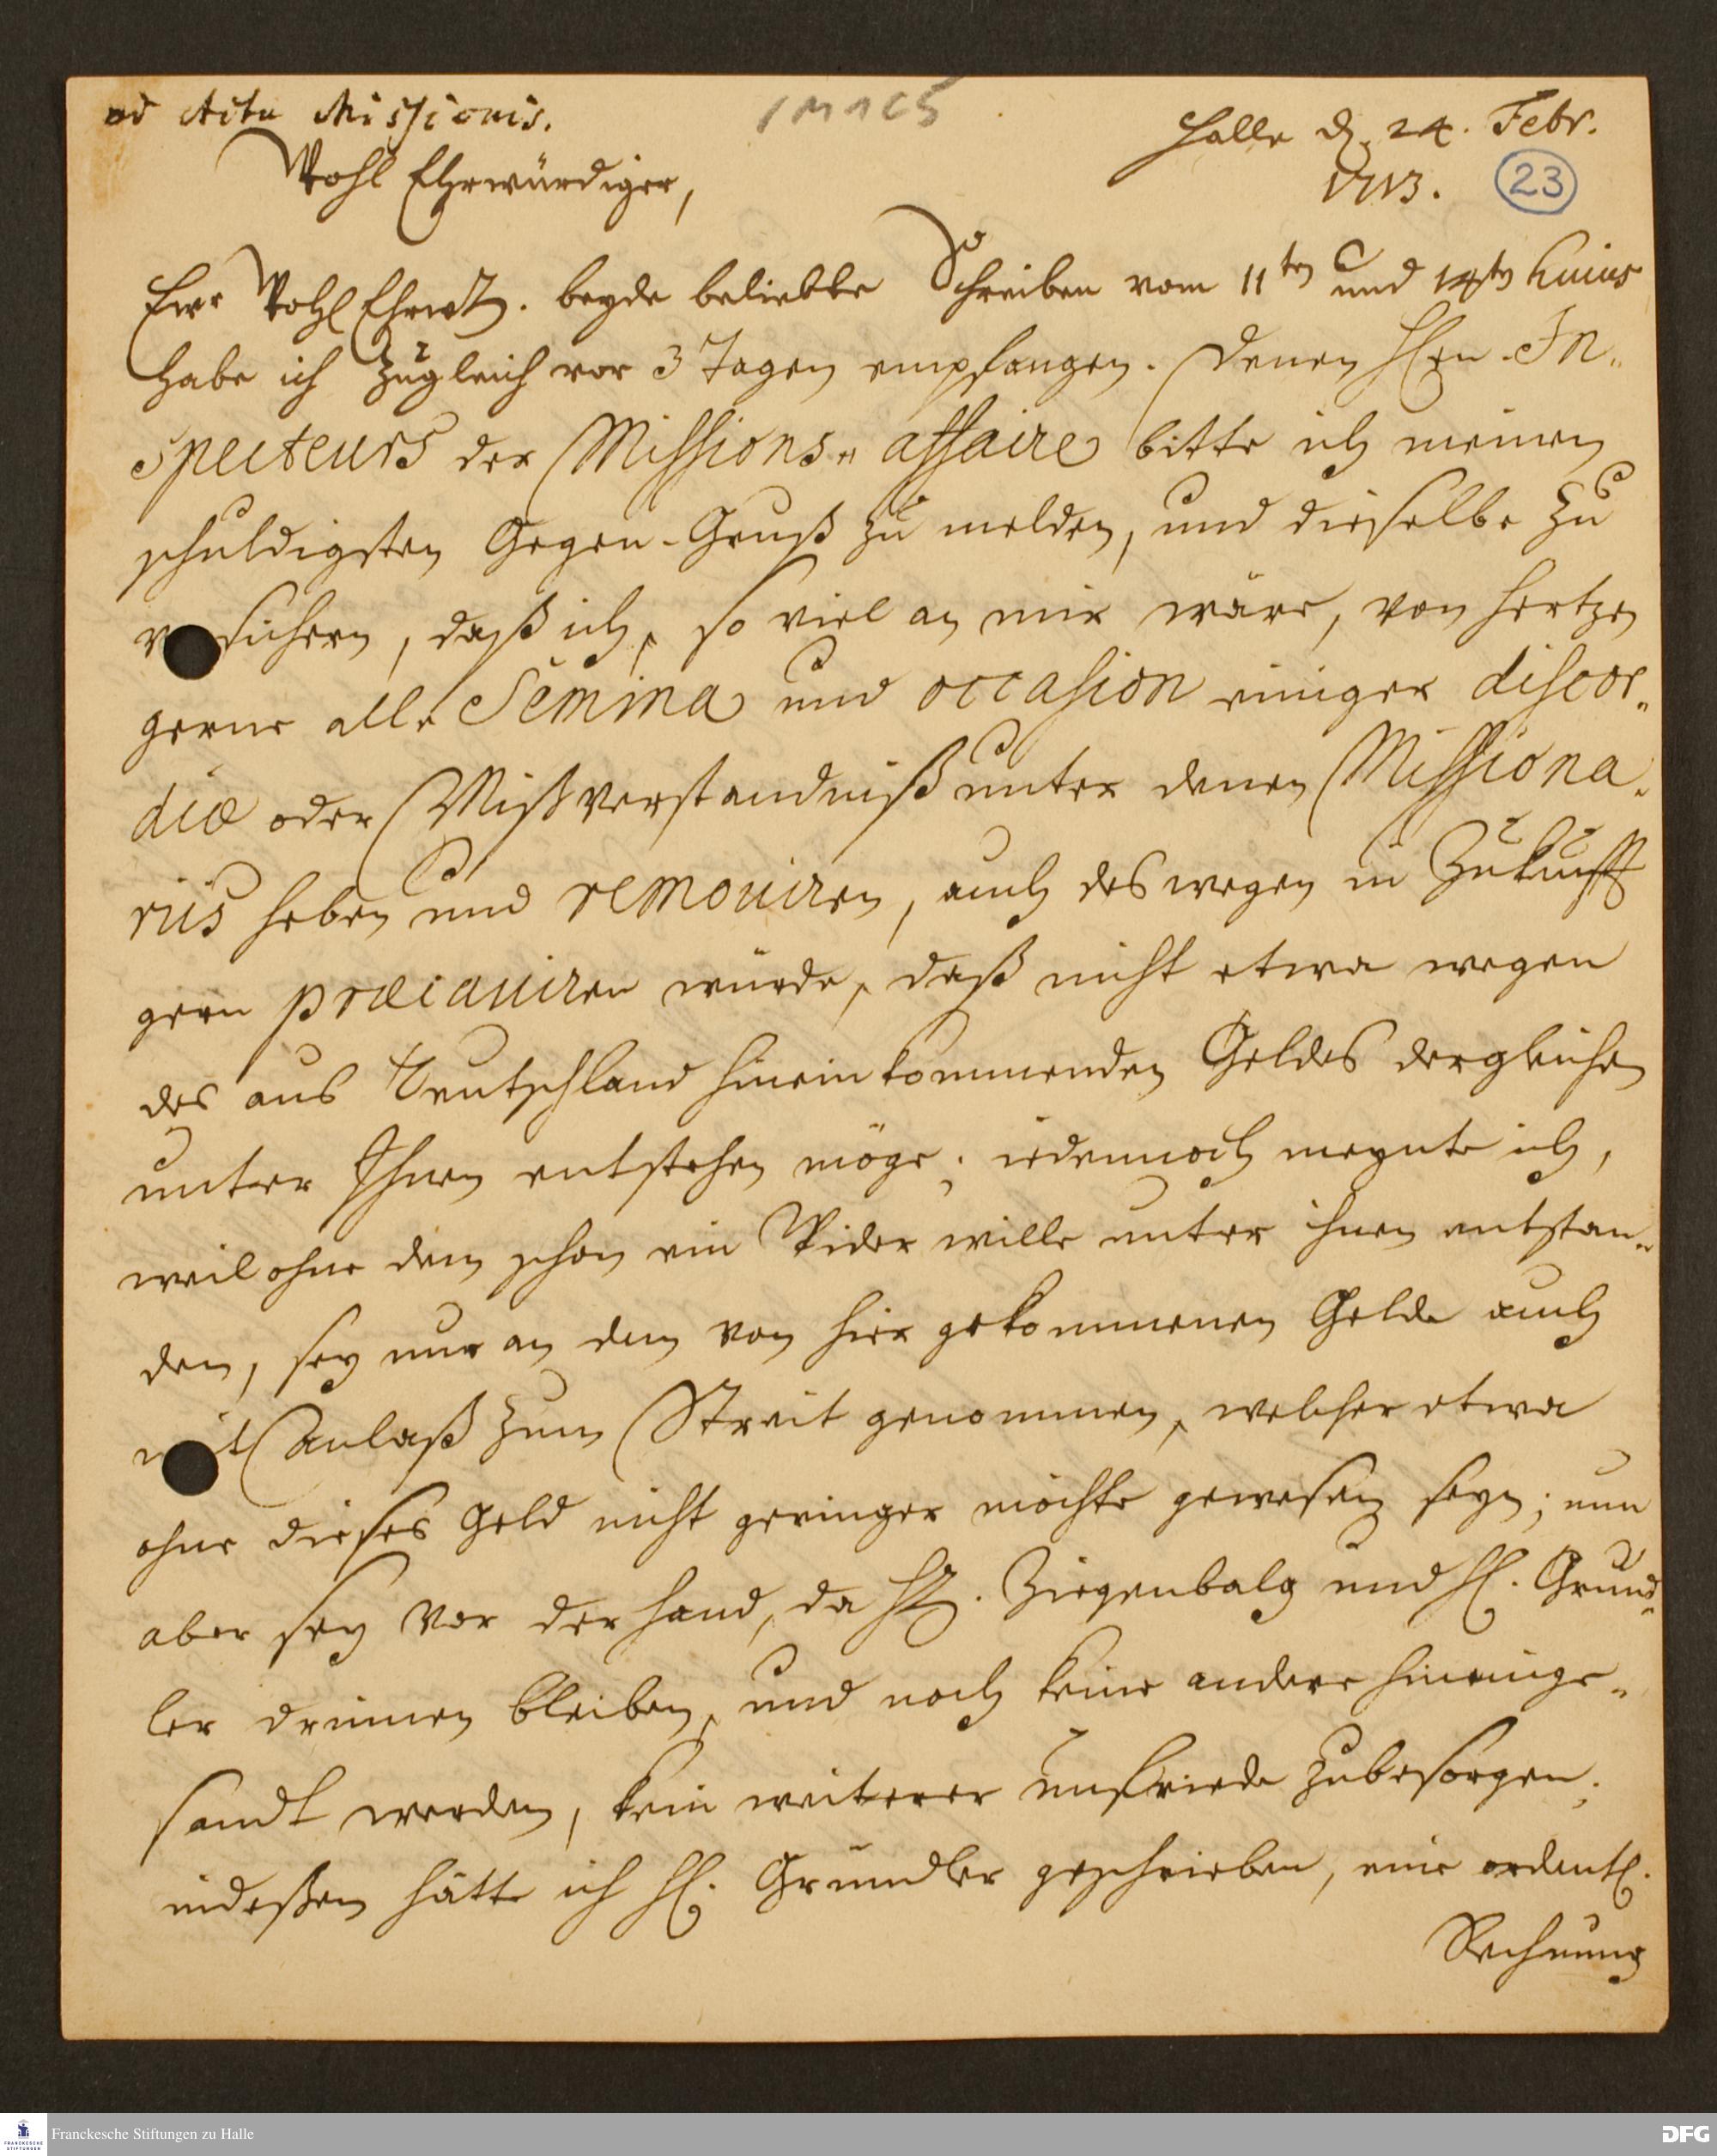 ad Acta Missionis.
1 M 1 C 5
Halle d. 24. Febr.
1713.
23
Wohl Ehrwürdiger,
Ewr Wohl Ehrwd. beyde beliebte Schreiben vom 11ten und 14ten huius
habe ich zugleich vor 3 Tagen empfangen. Denen HErn In-
specteurs der Missions-affaire bitte ich meinen
schuldigsten Gegen-Gruß zu melden, und dieselbe zu
versichern, daß ich, so viel an mir wäre, von Hertzen
gerne alle Semina und occasion einiger discor-
diae oder Mißverstandniß unter denen Missiona-
riis heben und removiren, auch deswegen in Zukunfft
gern praecaviren würde, daß nicht etwa wegen
des aus Teutschland hineinkommenden Geldes dergleichen
unter Ihnen entstehen möge; iedennoch meynte ich,
weil ohne dem schon ein Wider wille unter ihnen entstan-
den, sey nur an dem von hier gekommenen Gelde auch
mit anlaß zum Streit genommen, welcher etwa
ohne dieses Geld nicht geringer möchte gewesen seyn; nun
aber sey vor der Hand, da H. Ziegenbalg und H. Gründ-
ler drinnen bleiben, und noch keine andere hineinge-
sandt werden, kein weiterer unfriede zubesorgen;
indeßen hätte ich H. Gründler geschrieben, eine ordentl.
Rechnung
Franckesche Stiftungen zu Halle
FRANCKESCHE STIFTUNGEN
DFG